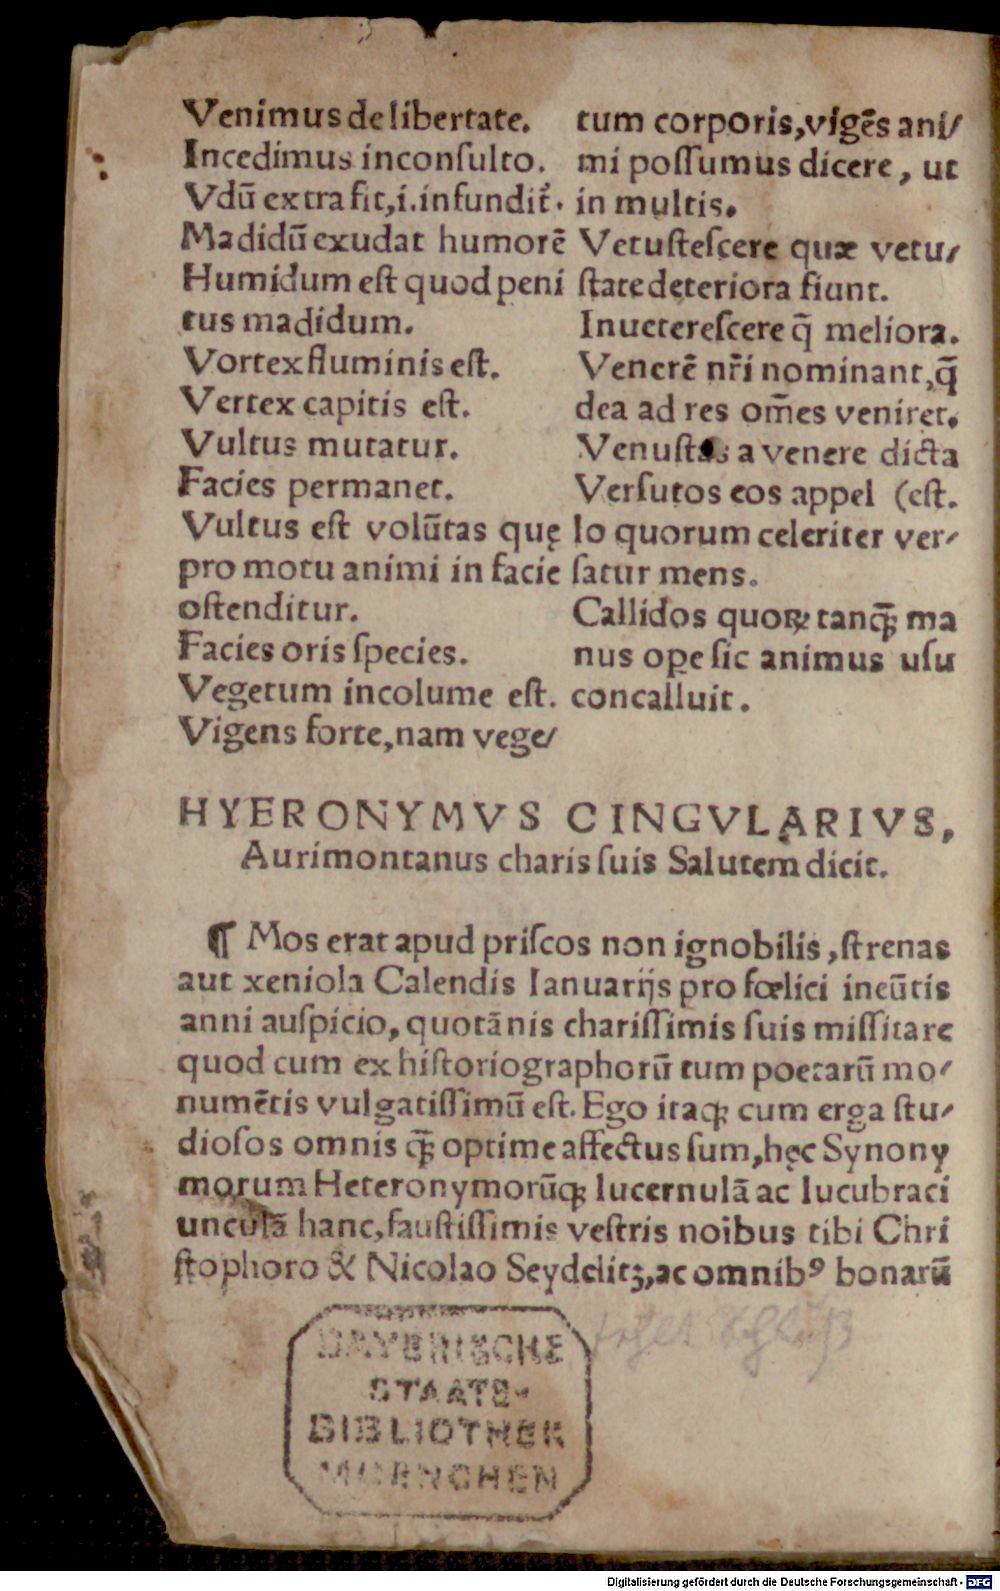 Venimus de libertate.
Incedimus inconſulto.
Vdũ extra fit, i. infundit᷑.
Madidũ exudat humorẽ
Humidum eſt quod peni
tus madidum.
Vortex fluminis eſt.
Vertex capitis eſt.
Vultus mutatur.
Facies permanet.
Vultus eſt volũtas quę
pro motu animi in facie
oſtenditur.
Facies oris ſpecies.
Vegetum incolume eſt.
Vigens forte, nam vege/
tum corporis, vigẽs ani/
mi poſſumus dicere, ut
in multis.
Vetuſteſcere quæ vetu/
ſtate deteriora fiunt.
Inueterefcere q̃ meliora.
Venerẽ nr̃i nominant, q̃
dea ad res om̃es veniret.
Venuſtas a venere dicta
Verſutos eos appel (eſt.
lo quorum celeriter ver/
ſatur mens.
Callidos quoꝝ tanꝙ̃ ma
nus ope ſic animus uſu
concalluit.
HYERONYMVS CINGVLARIVS,
Aurimontanus charis ſuis Salutem dicit.
¶ Mos erat apud priſcos non ignobilis, ſtrenas
aut xeniola Calendis Ianuarijs pro fœlici ineũtis
anni auſpicio, quotãnis chariſſimis ſuis miſſitare
quod cum ex hiſtoriographorũ tum poetarũ mo/
numẽtis vulgatiſſimũ eſt. Ego itaqꝫ cum erga ſtu/
dioſos omnis ꝙ̃ optime affectus ſum, hęc Synony
morum Heteronymorũqꝫ lucernulã ac lucubraci
unculã hanc, fauſtiſſimis veſtris noĩbus tibi Chri
ſtophoro & Nicolao Seydelitꝫ, ac omnibꝰ bonarũ
fehlt Schluß
BAYERISCHE
STAATS-
BIBLIOTHEK
MUENCHEN
Digitalisierung gefördert durch die Deutsche Forschungsgemeinschaft - DFG